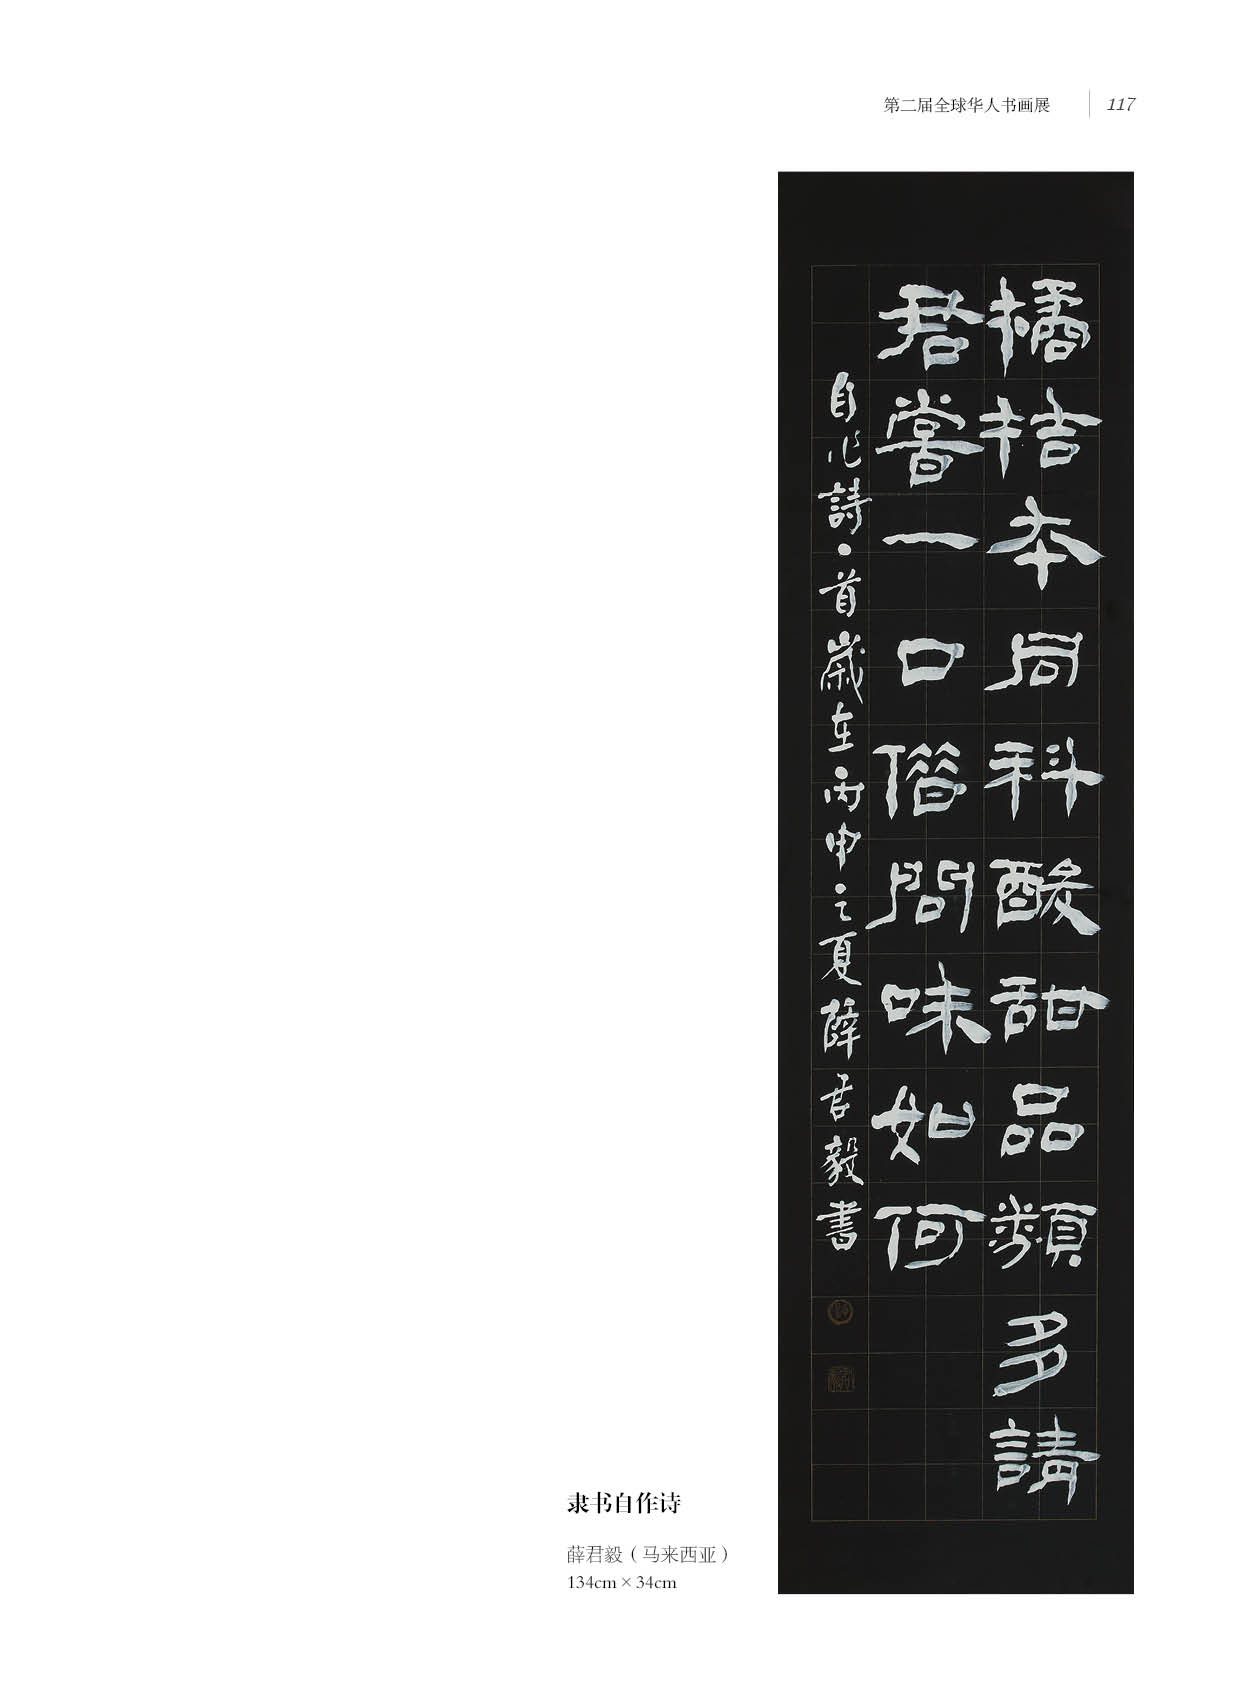 第二届全球华人书画展 117
橘桔本同科酸甜品類多請
君嘗一口偕問味如何
自作詩一首歲在丙申之夏薛君毅書
隶书自作诗
薛君毅（马来西亚）
134cm × 34cm